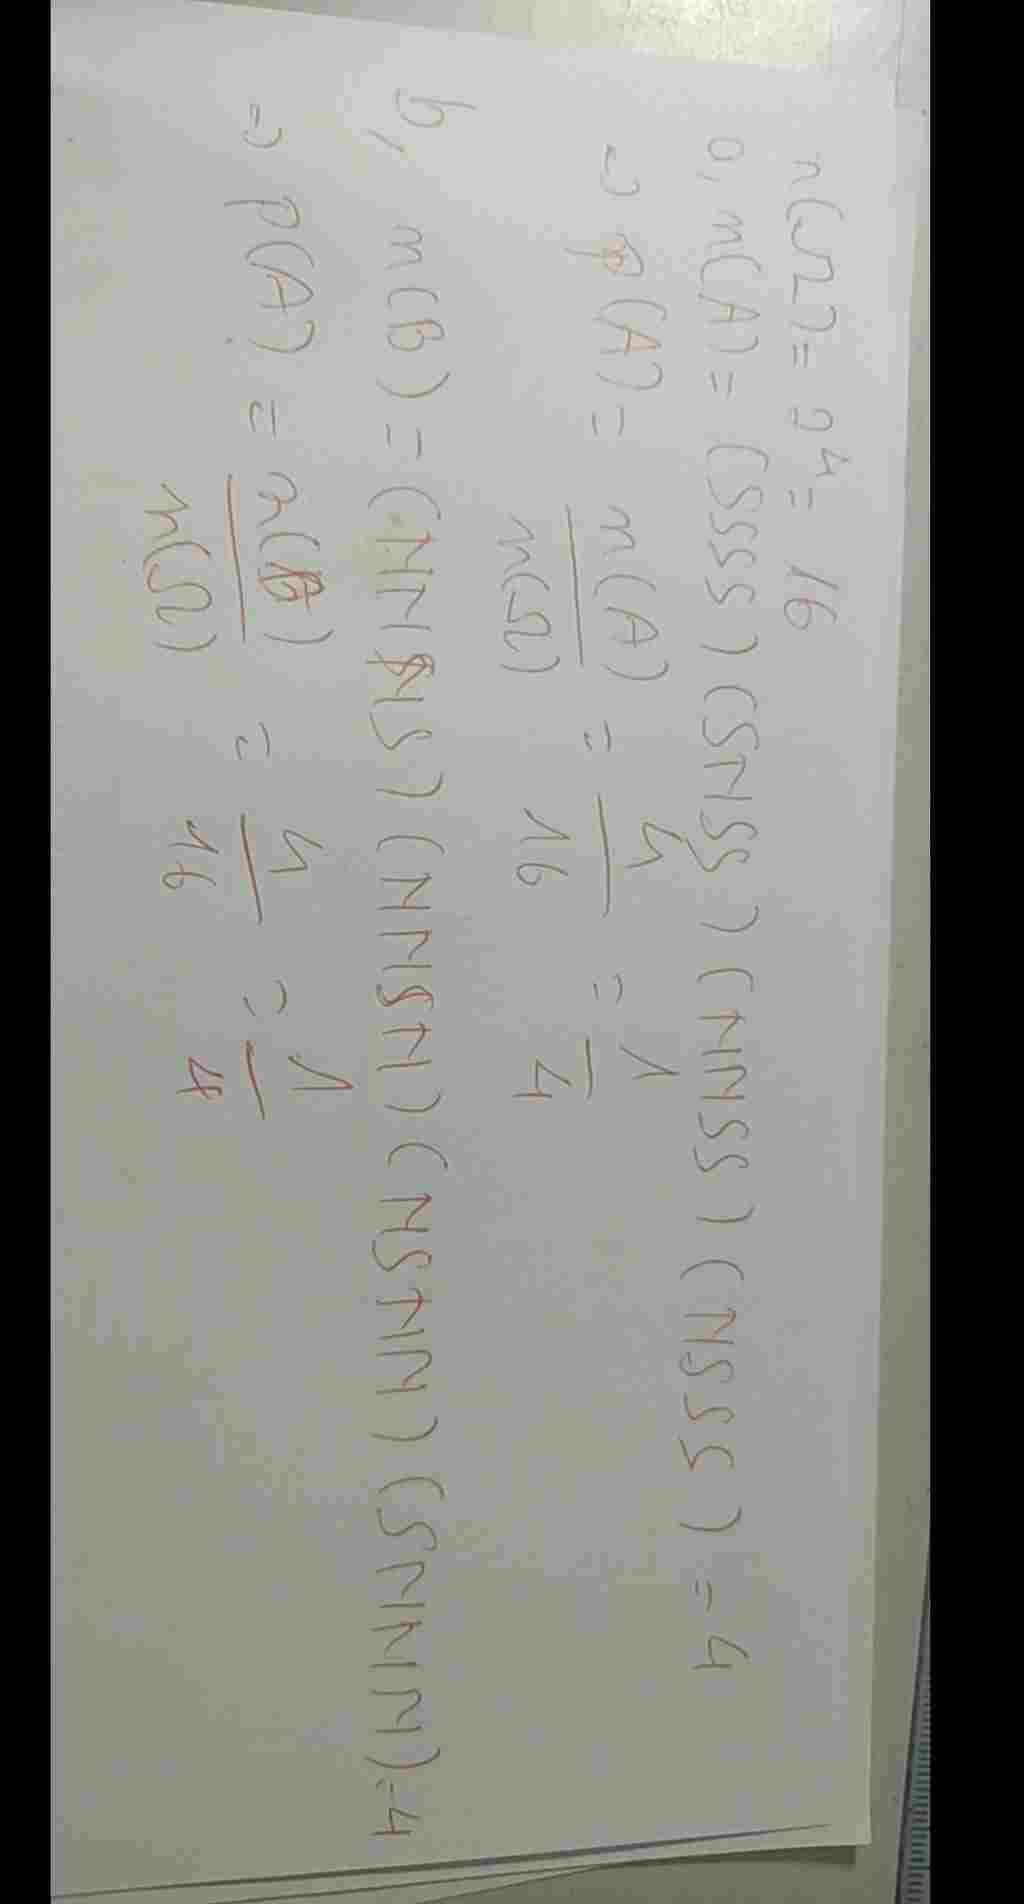 n(Ω) = 2⁴ = 16
a, n(A) = (SSSS) (SNSS) (NNSS) (NSSS) = 4
=> P(A) = n(A)/n(Ω) = 4/16 = 1/4
b, n(B) = (NNNS) (NNSN) (NSNN) (SNNN) = 4
=> P(A) = n(B)/n(Ω) = 4/16 = 1/4